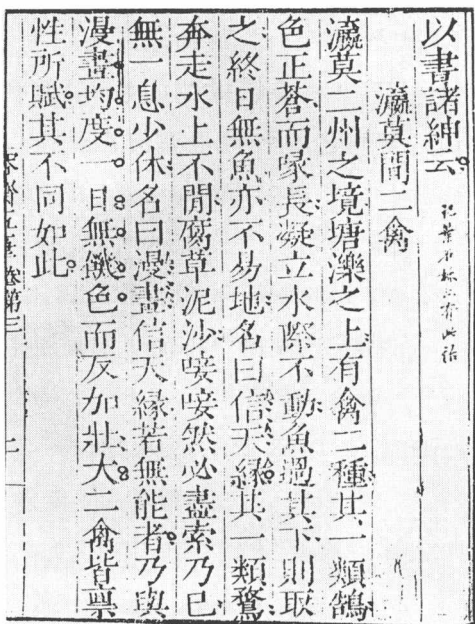 以書諸紳云
瀛莫間二禽
瀛莫二州之境塘濼之上有禽二種其一類鵠
色正蒼而喙長凝立水際不動魚過其下則取
之終日無魚亦不易地名曰信天緣其一類鶩
奔走水上不閒腐草泥沙唼唼然必盡索乃已
無一息少休名曰漫畫信天緣若無能者乃與
漫畫均度一日無饑色而反加壯大二禽皆禀
性所賦其不同如此
卷第三